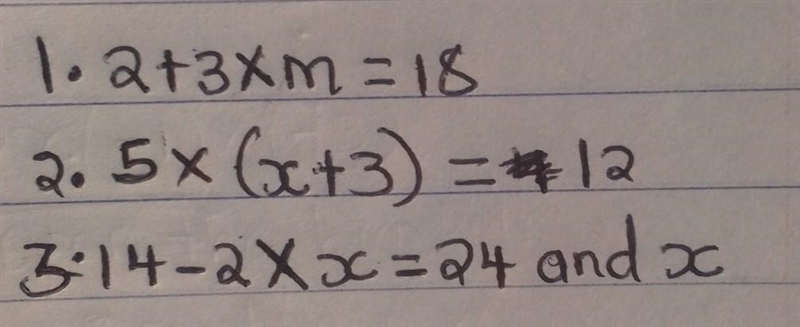 1. 2+3×m=18
2. 5×(x+3)=12
3. 14-2×x=24 and x